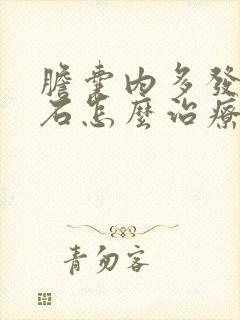 膽囊內多發
石怎麼治療
青勿客